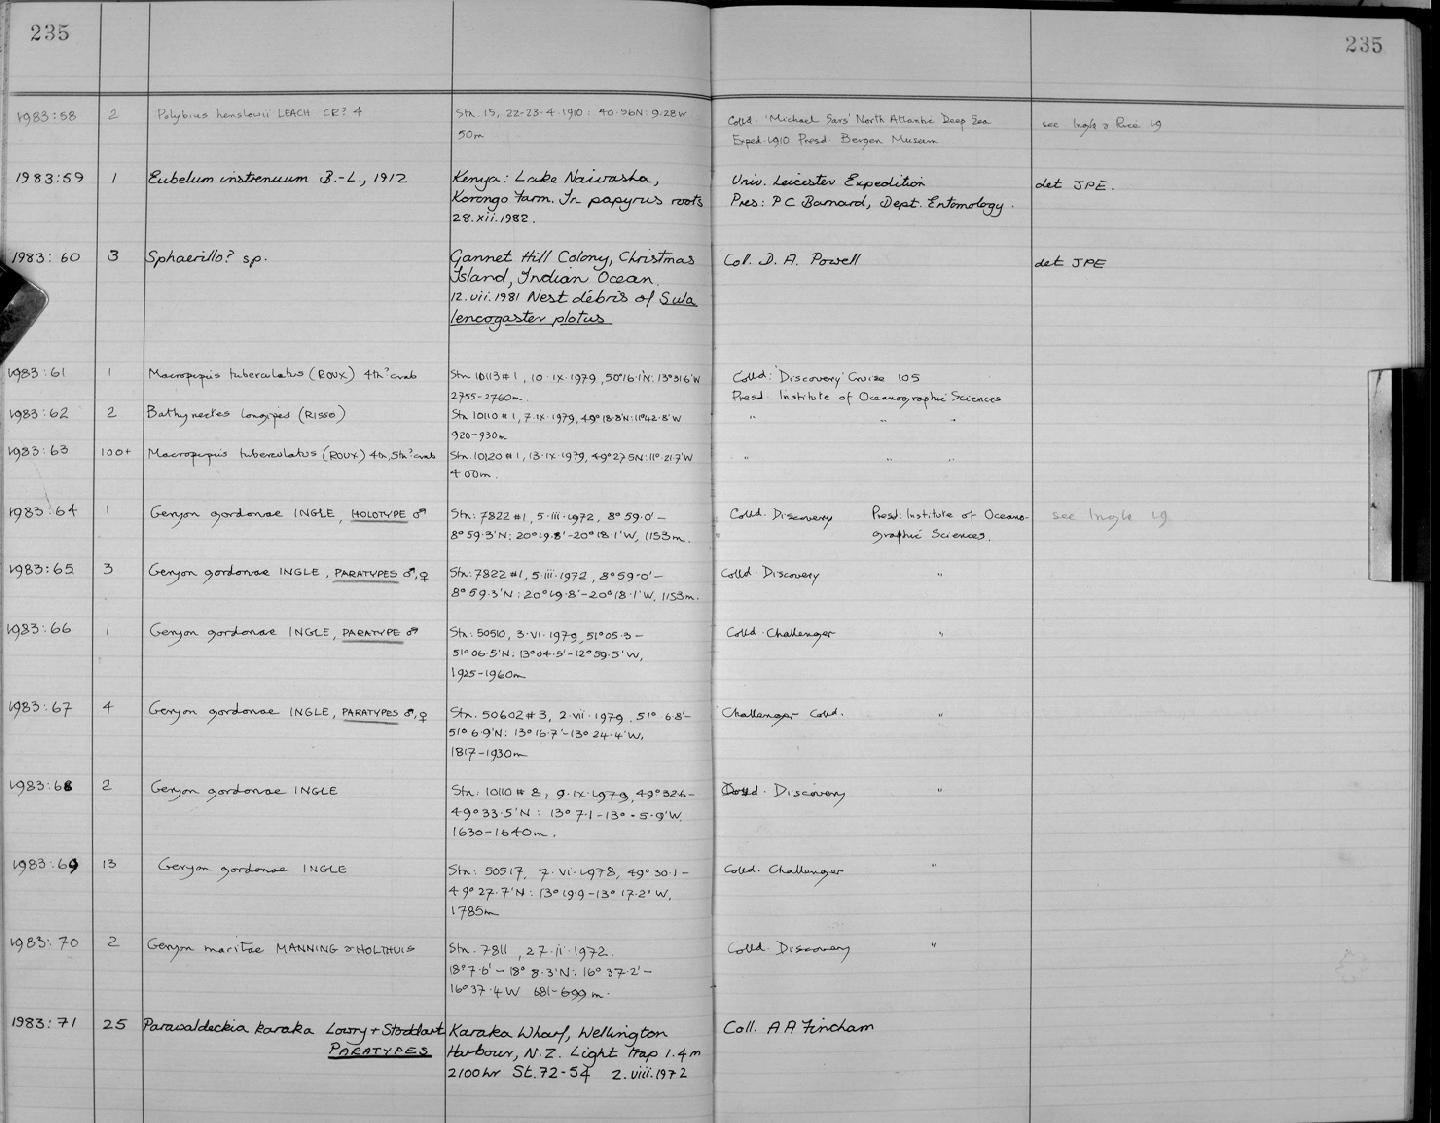 235
235
1983:58 2 Polybius henslowii LEACH CR? 4 Stn. 15, 22-23.4.1910: 40.56N: 9.28W Colld. 'Michael Sars' North Atlantic Deep Sea see Ingle & Rice 19
50m Exped. 1910 Presd. Bergen Museum
1983:59 1 Eubelum instrenuum B.-L., 1912 Kenya: Lake Naivasha, Univ. Leicester Expedition det JPE.
Korongo Farm. In papyrus roots Pres: P C Barnard, Dept. Entomology.
28.xii.1982.
1983:60 3 Sphaerillo? sp. Gannet Hill Colony, Christmas Col. D. A. Powell det JPE
Island, Indian Ocean.
12.vii.1981 Nest débris of Sula
lencogaster plotus
1983:61 1 Macropipus tuberculatus (ROUX) 4th? crab Stn 10113#1, 10.ix.1979, 50°16.1'N: 13°31.6'W Colld: 'Discovery' Cruise 105
2755-2760m. Presd. Institute of Oceanographic Sciences
1983:62 2 Bathynectes longipes (RISSO) Stn 10110#1, 7.ix.1979, 49°18.8'N: 11°42.8'W " " "
920-930m
1983:63 100+ Macropipus tuberculatus (ROUX) 4th, 5th? crab Stn. 10120#1, 13.ix.1979, 49°27.5N: 11°21.7'W " " "
400m.
1983:64 1 Geryon gordonae INGLE, HOLOTYPE ♂ Stn: 7822#1, 5.iii.1972, 8°59.0'- Colld. Discovery Presd. Institute of Oceano- see Ingle 19
8°59.3'N: 20°19.8'-20°18.1'W, 1153m. graphic Sciences.
1983:65 3 Geryon gordonae INGLE, PARATYPES ♂,♀ Stn: 7822#1, 5.iii.1972, 8°59.0'- Colld Discovery "
8°59.3'N: 20°19.8'-20°18.1'W, 1153m.
1983:66 1 Geryon gordonae INGLE, PARATYPE ♂ Stn: 50510, 3.VI.1979, 51°05.3- Colld. Challenger "
51°06.5'N: 13°04.5'-12°59.5'W,
1925-1960m
1983:67 4 Geryon gordonae INGLE, PARATYPES ♂,♀ Stn. 50602#3, 2.vii.1979, 51° 6.8'- Challenger Colld. "
51°6.9'N: 13°16.7'-13°24.4'W,
1817-1930m
1983:68 2 Geryon gordonae INGLE Stn: 10110#8, 9.ix.1979, 49°32.6- Colld. Discovery "
49°33.5'N: 13°7.1-13°.5.9'W.
1630-1640m.
1983:69 13 Geryon gordonae INGLE Stn: 50517, 7.VI.1978, 49°30.1- Colld. Challenger "
49°27.7'N: 13°19.9-13°17.2'W,
1785m
1983:70 2 Geryon maritae MANNING & HOLTHUIS Stn. 7811, 27.ii.1972. Colld. Discovery "
18°7.6'-18°8.3'N: 16°37.2'-
16°37.4W 681-699m.
1983:71 25 Parawaldeckia karaka Lowry + Stoddart Karaka Wharf, Wellington Coll. A A Fincham
PARATYPES Harbour, N.Z. Light trap 1.4m
2100hr St.72-54 2.viii.1972